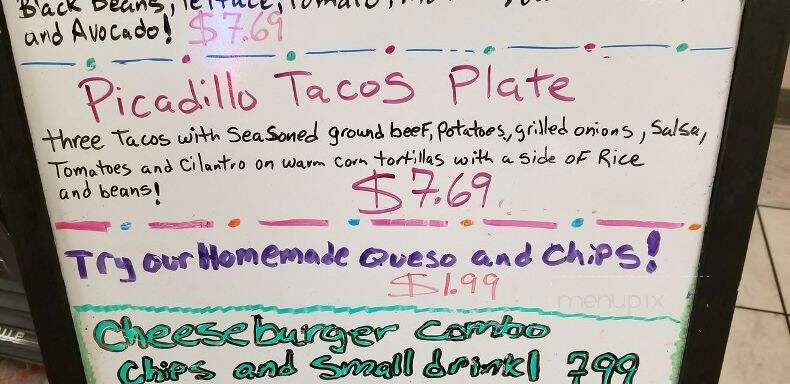 Black Beans, lettuce, Tomato,
and Avocado! $7.69
Picadillo Tacos Plate
three Tacos with Seasoned ground beef, Potatoes, grilled onions, Salsa,
Tomatoes and Cilantro on warm corn tortillas with a side of Rice
and beans!
$7.69
Try our Homemade Queso and Chips!
$1.99
menupix
Cheeseburger Combo
Chips and Small drink! 799